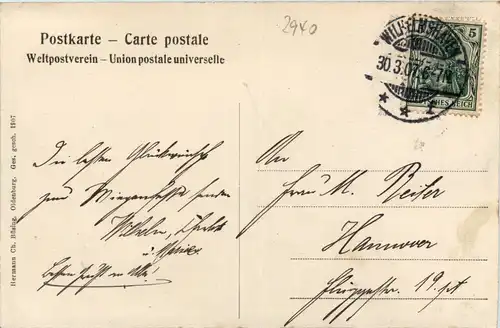 2940
Postkarte – Carte postale
Weltpostverein – Union postale universelle
WILHELMSHAVEN
30.3.07. 6-7N
* * 1
5
DEUTSCHES REICH
Hermann Ch. Büsing, Oldenburg. Ges. gesch. 1107
Die besten Glückwünsche
zum Wiegenfeste senden
Wilhelm,
u. Marie
An
Frau M. Reiser
Hannover
19. pt